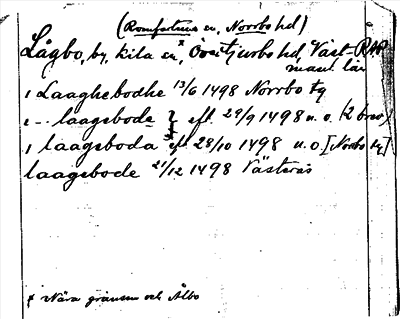 (Romfartuna sn, Norrbo hd)
Lågbo, by, Kila sn,ˣ Övertjurbo hd, Väst- RAP
manl. län
i Laaghebodhe 13/6 1498 Norrbo tg
i -.. laagsbode eft 29/9 1498 u. o. (2 brev)
i laagsboda eft 28/10 1498 u. o [Norbo tg]
laagsbode 21/12 1498 Västerås
x Nära gränsen och Ålbo